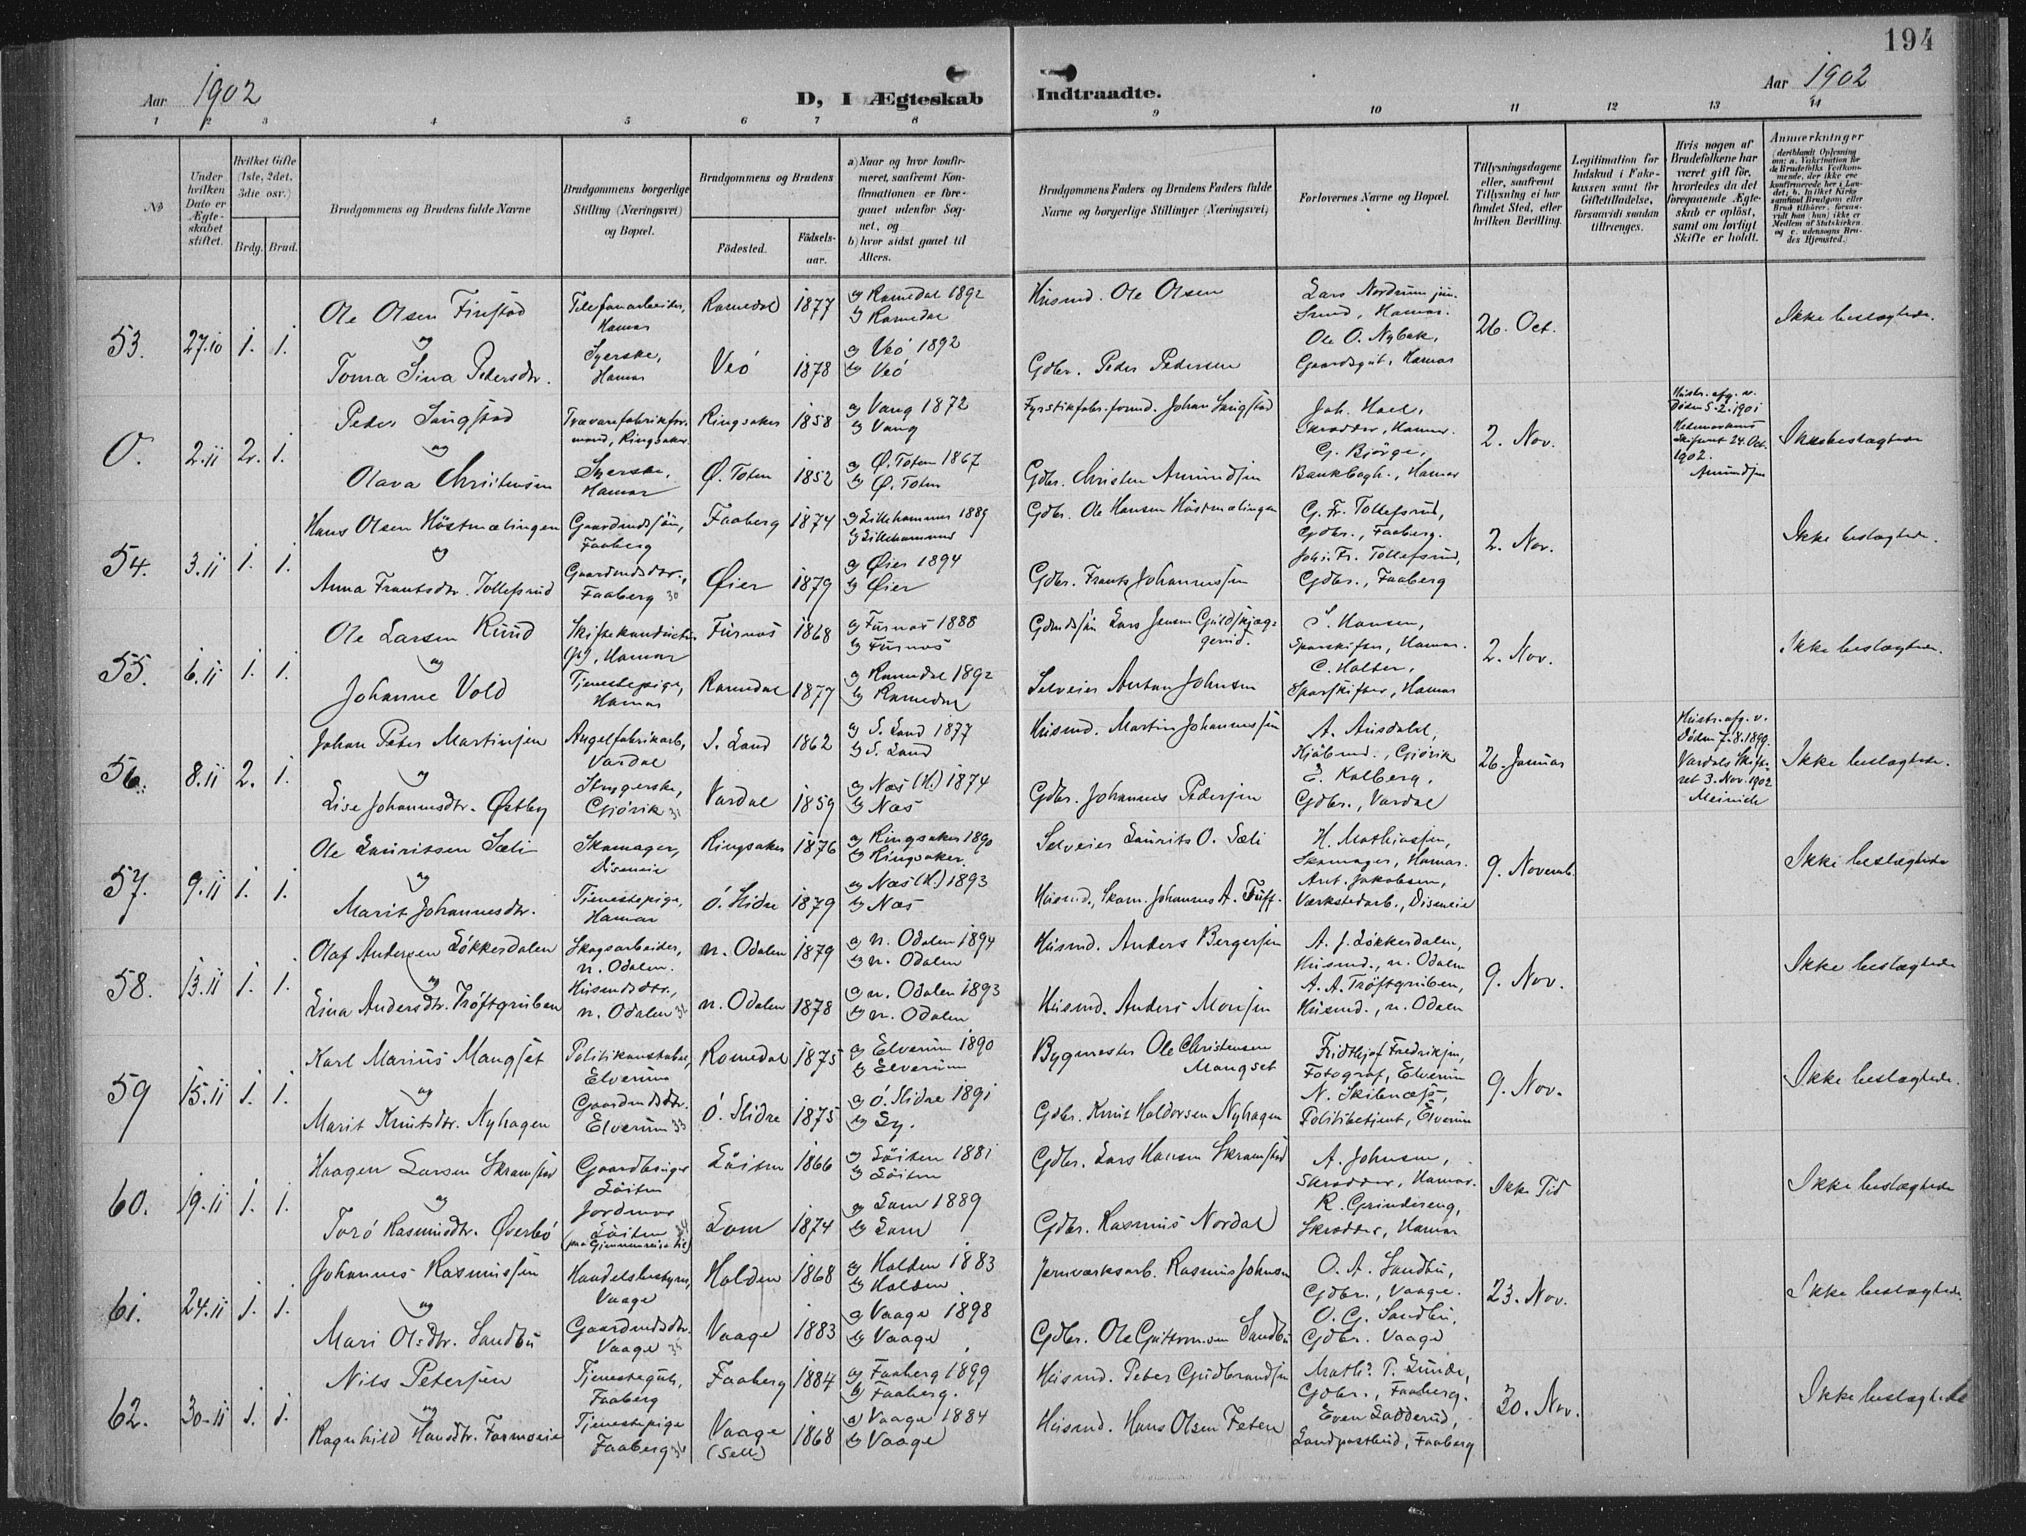 194
Aar 1902
D, I Ægteskab Indtraadte.
Aar 1902
1 2 3 4 5 6 7 8 9 10 11 12 13 14
No
Under hvilken Dato er Ægteskabet stiftet.
Hvilket Gifte (1ste, 2det, 3die osv.)
Brdg. Brud.
Brudgommens og Brudens fulde Navne
Brudgommens borgerlige Stilling (Næringsvei) og Bopæl.
Brudgommens og Brudens
Fødested. Fødselsaar.
a) Naar og hvor konfirmeret, saafremt Konfirmationen er foregaaet udenfor Sognet, og
b) hvor sidst gaaet til Alters.
Brudgommens Faders og Brudens Faders fulde Navne og borgerlige Stillinger (Næringsvei)
Forlovernes Navne og Bopæl.
Tillysningsdagene eller, saafremt Tillysning ei har fundet Sted, efter hvilken Bevilling.
Legitimation for Indskud i Fakkassen samt for Giftetilladelse, forsaavidt saadan tiltrænges.
Hvis nogen af Brudefolkene har været gift før, hvorledes da det foregaaende Ægteskab er opløst, samt om lovligt Skifte er holdt.
Anmærkninger
53. 27.10 1. 1.
Ole Olsen Finstad
Telefonarbeider, Hamar
Romedal 1877
a) Romedal 1892
b) Romedal
Husmd. Ole Olsen
Lars Nordrum jun. Smed, Hamar.
26. Oct.
Ikke beslægtede.
og
Toma Sina Pedersdtr.
Syerske, Hamar
Veø 1878
a) Veø 1892
b) Veø
Gdbr. Peder Pedersen
Ole O. Nybak, Gaardsgut, Hamar
0. 2.11 2. 1.
Peder Saugstad
Trævarefabrikformand, Ringsaker
Ringsaker 1858
a) Vang 1872
b) Vang
Fyrstikfabr.formd. Johan Saugstad
Joh. Hoel, Skrædder, Hamar.
2. Nov.
Hustr. afg. v. Døden 5-2-1901
Hedemarkens Skifteret 24. Oct. 1902.
Amundsen
Ikke beslægtede
og
Olava Christensen
Syerske, Hamar
Ø. Toten 1852
a) Ø. Toten 1867
b) Ø. Toten
Gdbr. Christen Amundsen
G. Bjørge, Bankbogh., Hamar
54. 3.11 1. 1.
Hans Olsen Høstmælingen
Gaardmdssøn, Faaberg
Faaberg 1874
a) Lillehammer 1889
b) Lillehammer
Gdbr. Ole Hansen Høstmælingen
G. Fr. Tollefsrud, Gdbr., Faaberg.
2. Nov.
Ikke beslægtede.
og
Anna Frantsdtr. Tollefsrud
Gaardmdsdtr., Faaberg 30
Øier 1879
a) Øier 1894
b) Øier
Gdbr. Frants Johannessen
Joh. Fr. Tollefsrud, Gdbr., Faaberg
55. 6.11 1. 1.
Ole Larsen Rund
Hamar
Furnæs 1868
a) Furnæs 1888
b) Furnæs
Lars Jensen
S. Hansen, Sporskifter, Hamar.
2. Nov.
Ikke beslægtede.
og
Johanne Vold
Tjenestepige, Hamar
Romedal 1877
a) Romedal 1892
b) Romedal
Selveier Anton Johnsen
C. Holter, Sporskifter, Hamar
56. 8.11 2. 1.
Johan Peter Martinsen
Angelfabrikarb., Vardal
S. Land 1862
a) S. Land 1877
b) S. Land
Husmd. Martin Johannessen
A. Ausdahl, Kjøbmd., Gjøvik
26. Januar
Hustr. afg. v. Døden 7-8-1899.
Vardals Skifteret 3. Nov. 1902
Meinich
Ikke beslægtede.
og
Lise Johannsdtr. Østby
Strygerske, Gjøvik 31
Vardal 1859
a) Næs (H.) 1874
b) Næs
Gdbr. Johannes Pedersen
E. Kolberg, Gdbr., Vardal
57. 9.11 1. 1.
Ole Lauritsen Sæli
Skomager, Disenaa
Ringsaker 1876
a) Ringsaker 1890
b) Ringsaker.
Selveier Laurits O. Sæli
H. Mathiassen, Skomager, Hamar.
9. Novemb.
Ikke beslægtede
og
Marit Johannesdtr.
Tjenestepige, Hamar
Ø. Slidre 1879
a) Næs (H.) 1893
b) Næs
Husmd. Skom. Johannes A. Tuff.
Ant. Jakobsen, Værkstedarb.
58. 13.11 1. 1.
Olaf Andersen Løkkerdalen
Skogsarbeider, n. Odalen.
n. Odalen 1879
a) n. Odalen 1894
b) n. Odalen
Husmd. Anders Bergersen
A. J. Løkkerdalen, Husmd., n. Odalen
9. Nov.
Ikke beslægtede
og
Lina Andersdtr. Trøftgruben
Husmdsdtr., n. Odalen 32
n. Odalen 1878
a) n. Odalen 1893
b) n. Odalen
Husmd. Anders Monsen
A. A. Trøftgruben, Husmd., n. Odalen
59 15.11 1. 1.
Karl Marius Mangset
Politikonstabel, Elverum
Romedal 1875
a) Elverum 1890
b) Elverum
Bygmester Ole Christensen Mangset
Fridthjof Fredriksen, Fotograf, Elverum
9. Nov.
Ikke beslægtede.
og
Marit Knutsdtr. Nyhagen
Gaardmdsdtr. Elverum 33
Ø. Slidre 1875
a) Ø. Slidre 1891
b)
Gdbr. Knut Haldorsen Nyhagen
N. Skibnæss, Politibetjent, Elverum
60. 19.11 1. 1.
Haagen Larsen Skramstad
Løiten
Løiten 1866
a) Løiten 1881
b) Løiten
Gdbr. Lars Hansen Skramstad
A. Johnsen, Skrædder, Hamar.
Ikke Tid
Ikke beslægtede
og
Torø Rasmusdtr. Øverbø
Jordmor Løiten
Lom 1874
a) Lom 1889
b) Lom
Gdbr. Rasmus Nordal
R. Grindereng, Skrædder, Hamar
61. 24.11 1. 1.
Johannes Rasmussen
Handelsbestyrer, Vaage
Holden 1868
a) Holden 1883
b) Holden
Jernværksarb. Rasmus Johnsen
O. A. Sandbu, Gdbr., Vaage.
23. Nov.
Ikke beslægtede.
og
Mari Olsdtr. Sandbu
Gaardmdsdtr. Vaage 35
Vaage 1883
a) Vaage 1898
b) Vaage
Gdbr. Ole Guttormsen Sandbu
O. G. Sandbu, Gdbr. Vaage
62. 30.11 1. 1.
Nils Petersen
Tjenestegut, Faaberg
Faaberg 1884
a) Faaberg 1899
b) Faaberg.
Husmd. Peter Gudbrandsen
Math. P. Lunde, Gdbr., Faaberg.
30. Nov.
Ikke beslægtede
og
Ragnhild Hansdtr. Formoeie
Tjenestepige Faaberg 36
Vaage (Sell) 1868
a) Vaage 1884
b) Vaage
Husmd. Hans Olsen Feten
Even Ladderud, Landpostbud, Faaberg